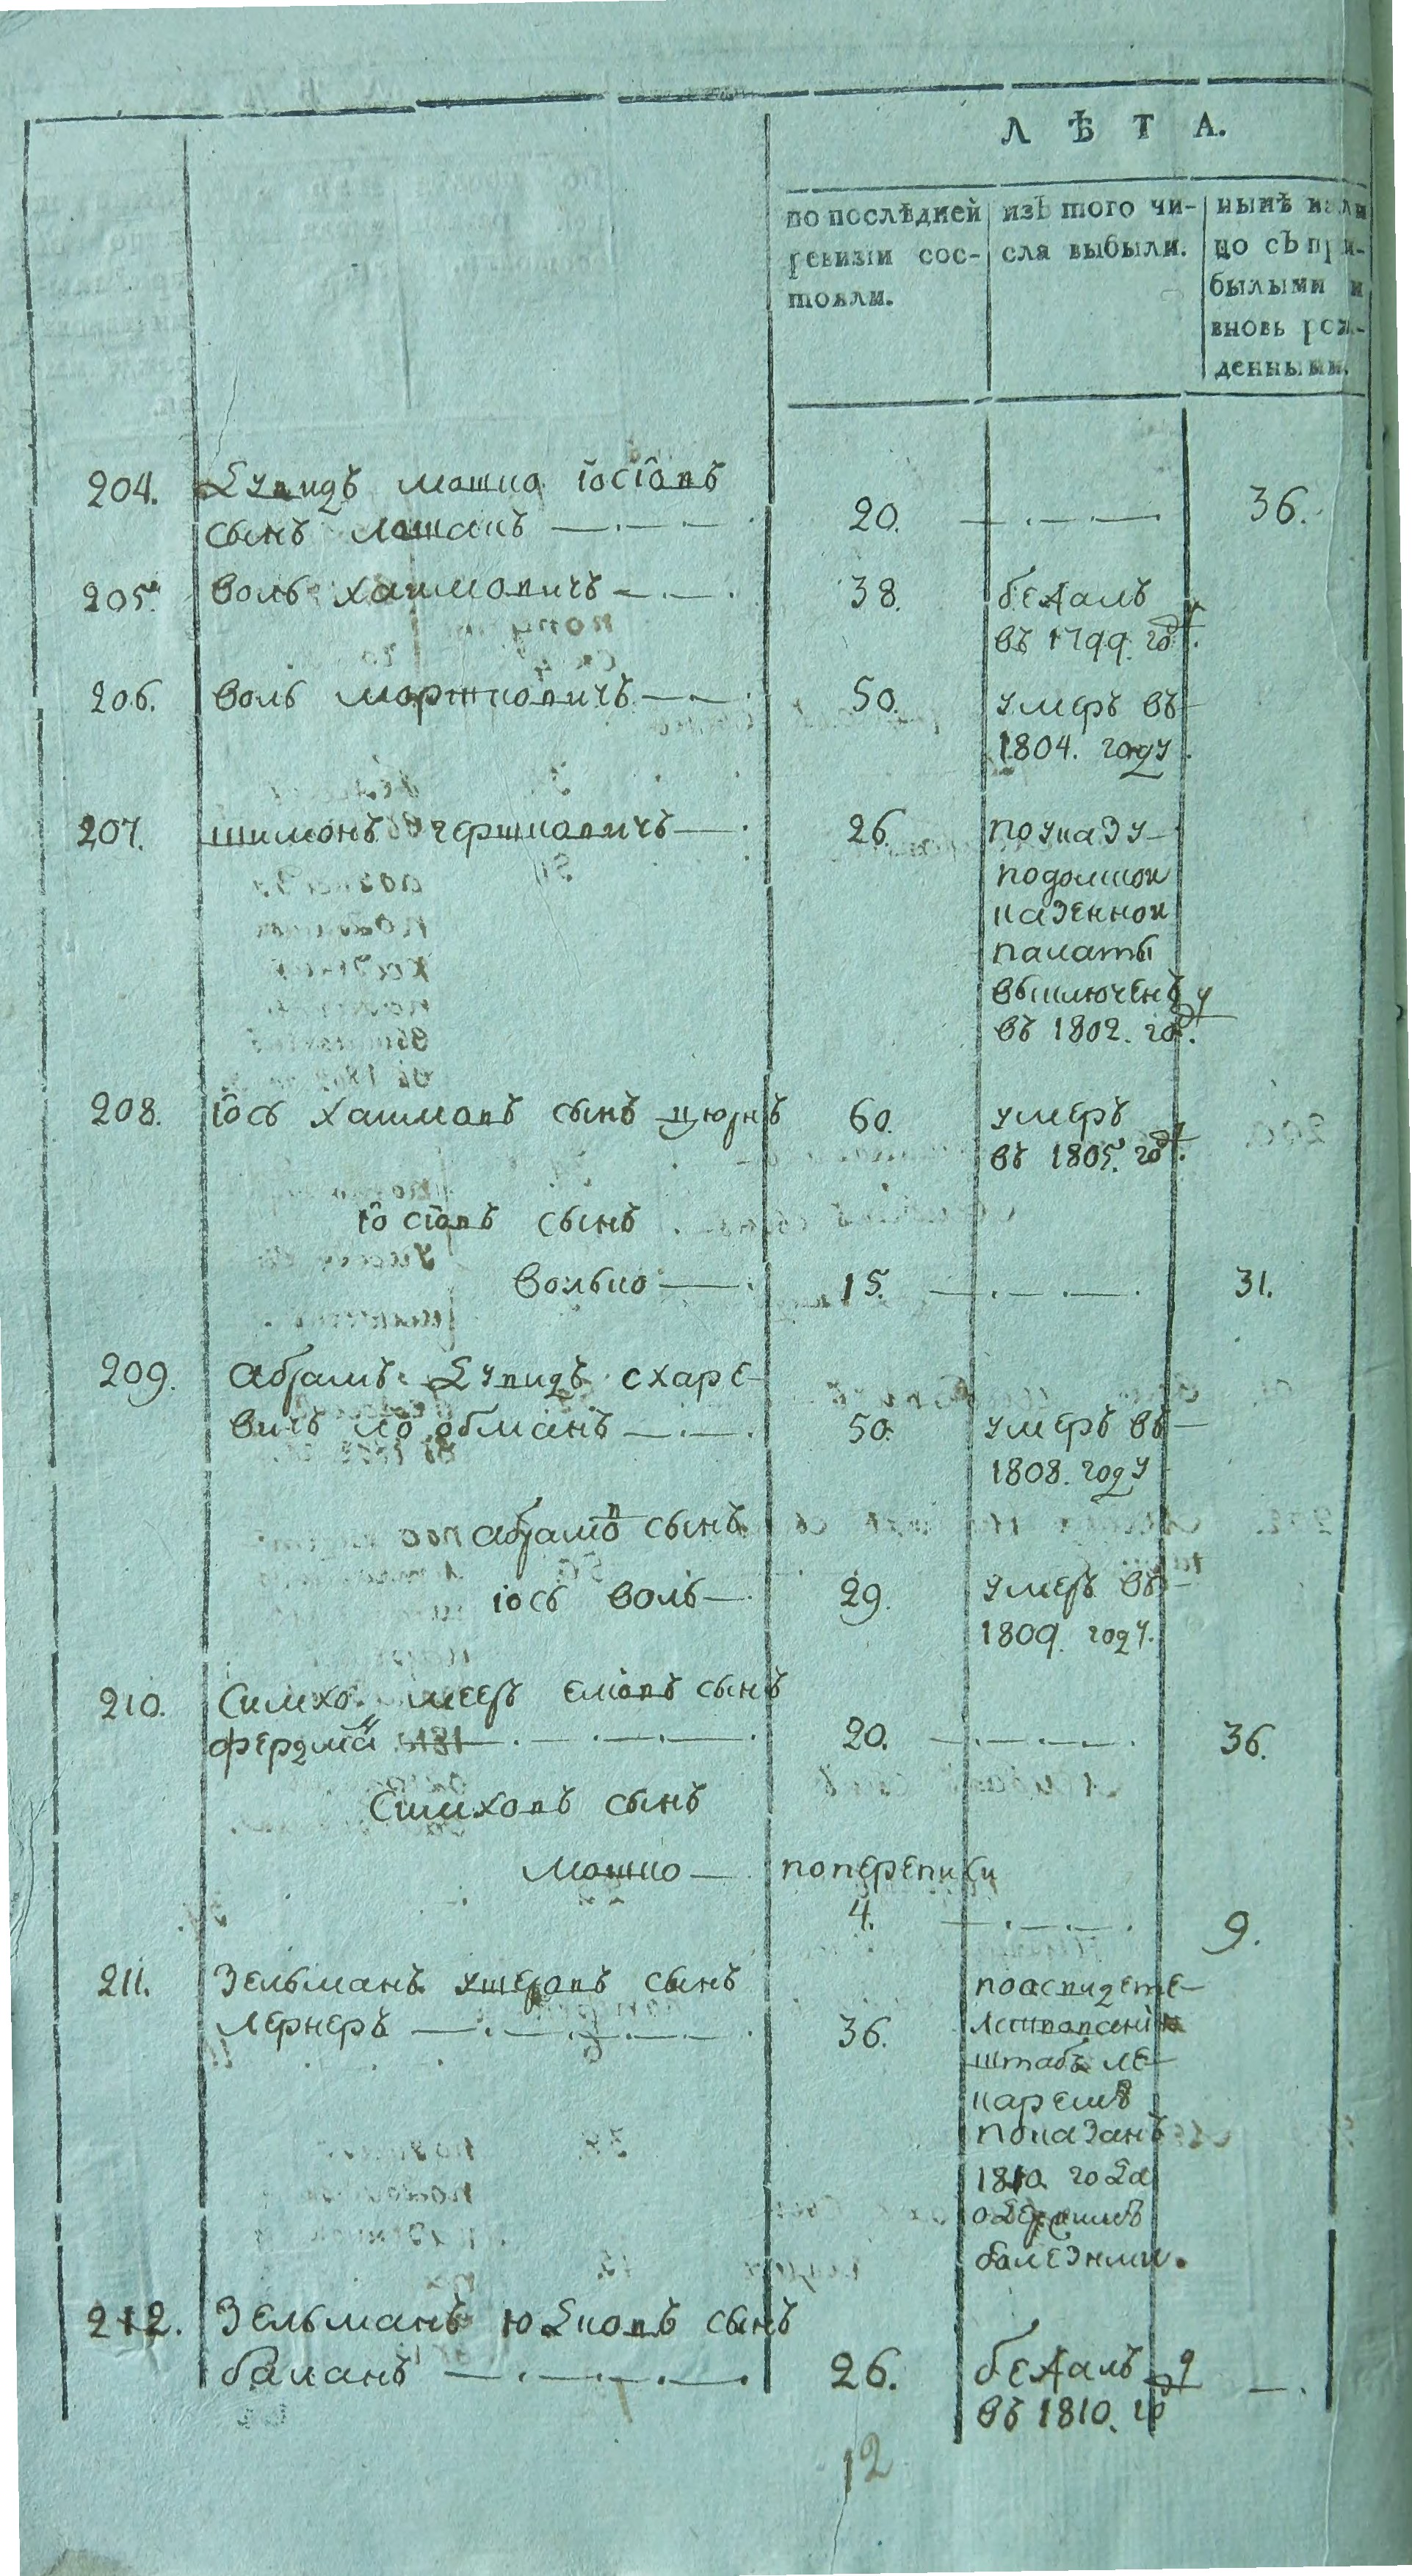 ЛѢТА.
по послѣдней
ревизіи сос-
тояли.
изъ того чи-
сла выбыли.
нынѣ нали
цо съ при-
былыми и
вновь рож-
денными.
204. Дувидъ мошко іосіовъ
сынъ 20. 36.
205. воль хаимовичъ 38. бежалъ
въ 1799. году.
206. воль моржковичъ 50. умеръ въ
1804. году.
207. шимонъ гершковичъ 26. по указу
подолской
казенной
палаты
выключенъ
въ 1802. году.
208. іось хаимовъ сынъ 60. умеръ
въ 1805. году.
іосіовъ сынъ
волько 15. 31.
209. абрамъ Дувидъ
вичъ 50. умеръ въ
1808. году
абрамовъ сынъ
іось воль 29. умеръ въ
1809. году.
210. Симхо мееръ сынъ
фердман 20. 36.
Симховъ сынъ
мошко по переписи
4. 9.
211. Зельманъ ушеровъ сынъ
лернеръ 36. по асвидете-
штабъ ле-
каремъ
показанъ
1810. года
одержимъ
болезнми.
212. Зельманъ юдковъ сынъ
баланъ 26. бежалъ
въ 1810. году
12